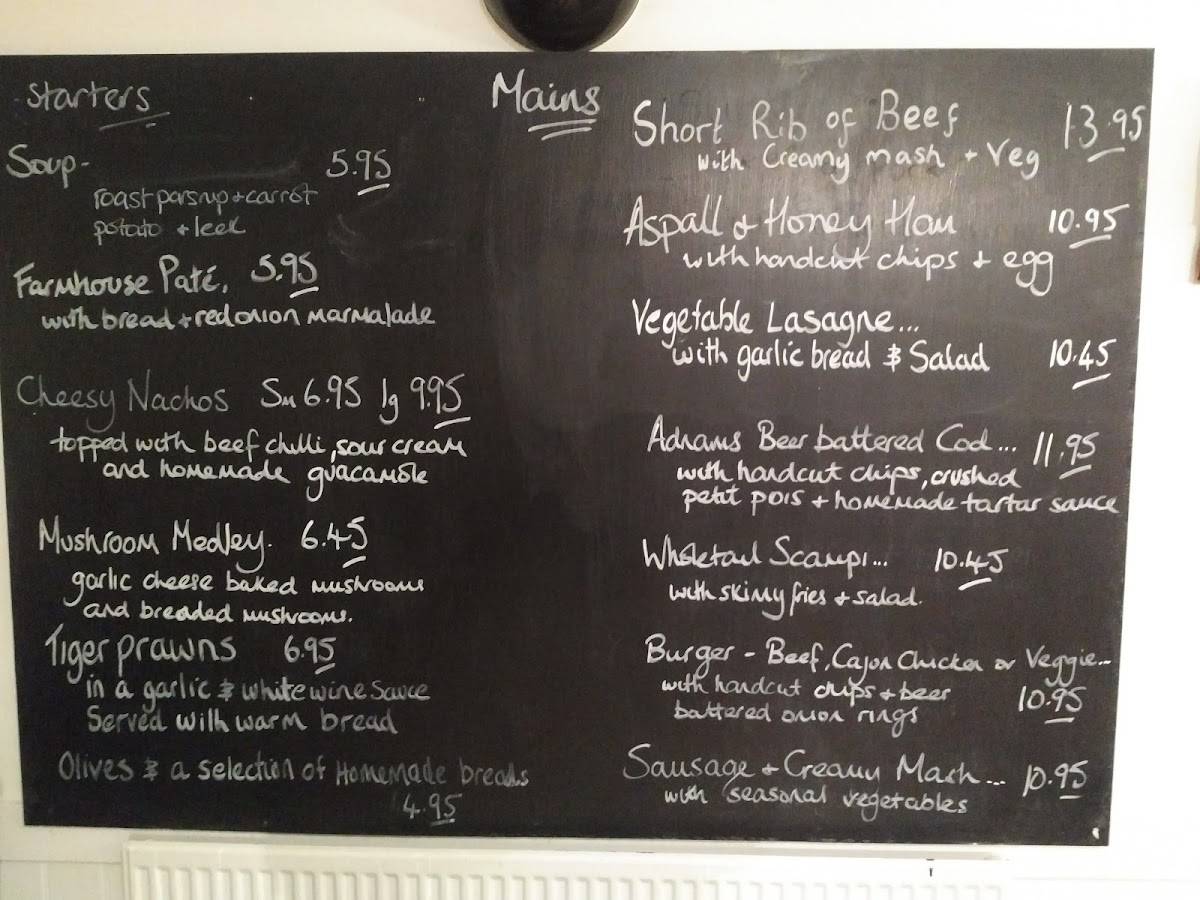 Starters
Soup - 5.95
roast parsnip + carrot
potato + leek
Farmhouse Paté. 5.95
with bread + red onion marmalade
Cheesy Nachos Sm 6.95 lg 9.95
topped with beef chilli, sour cream
and homemade guacamole
Mushroom Medley. 6.45
garlic cheese baked mushrooms
and breaded mushrooms.
Tiger prawns 6.95
in a garlic & white wine sauce
Served with warm bread
Olives & a selection of Homemade breads
4.95
Mains
Short Rib of Beef 13.95
with Creamy mash + Veg
Aspall & Honey Ham 10.95
with handcut chips + egg
Vegetable Lasagne...
with garlic bread & Salad 10.45
Adnams Beer battered Cod... 11.95
with handcut chips, crushed
petit pois + homemade tartar sauce
Wholetail Scampi... 10.45
with skinny fries + salad.
Burger - Beef, Cajun Chicken or Veggie...
with handcut chips + beer 10.95
battered onion rings
Sausage + Creamy Mash... 10.95
with seasonal vegetables